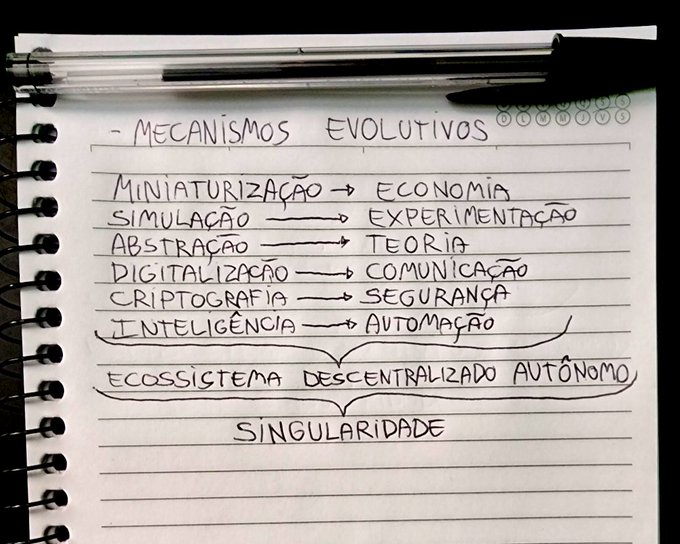 - MECANISMOS EVOLUTIVOS
MINIATURIZAÇÃO → ECONOMIA
SIMULAÇÃO → EXPERIMENTAÇÃO
ABSTRAÇÃO → TEORIA
DIGITALIZAÇÃO → COMUNICAÇÃO
CRIPTOGRAFIA → SEGURANÇA
INTELIGÊNCIA → AUTOMAÇÃO
ECOSSISTEMA DESCENTRALIZADO AUTÔNOMO
SINGULARIDADE